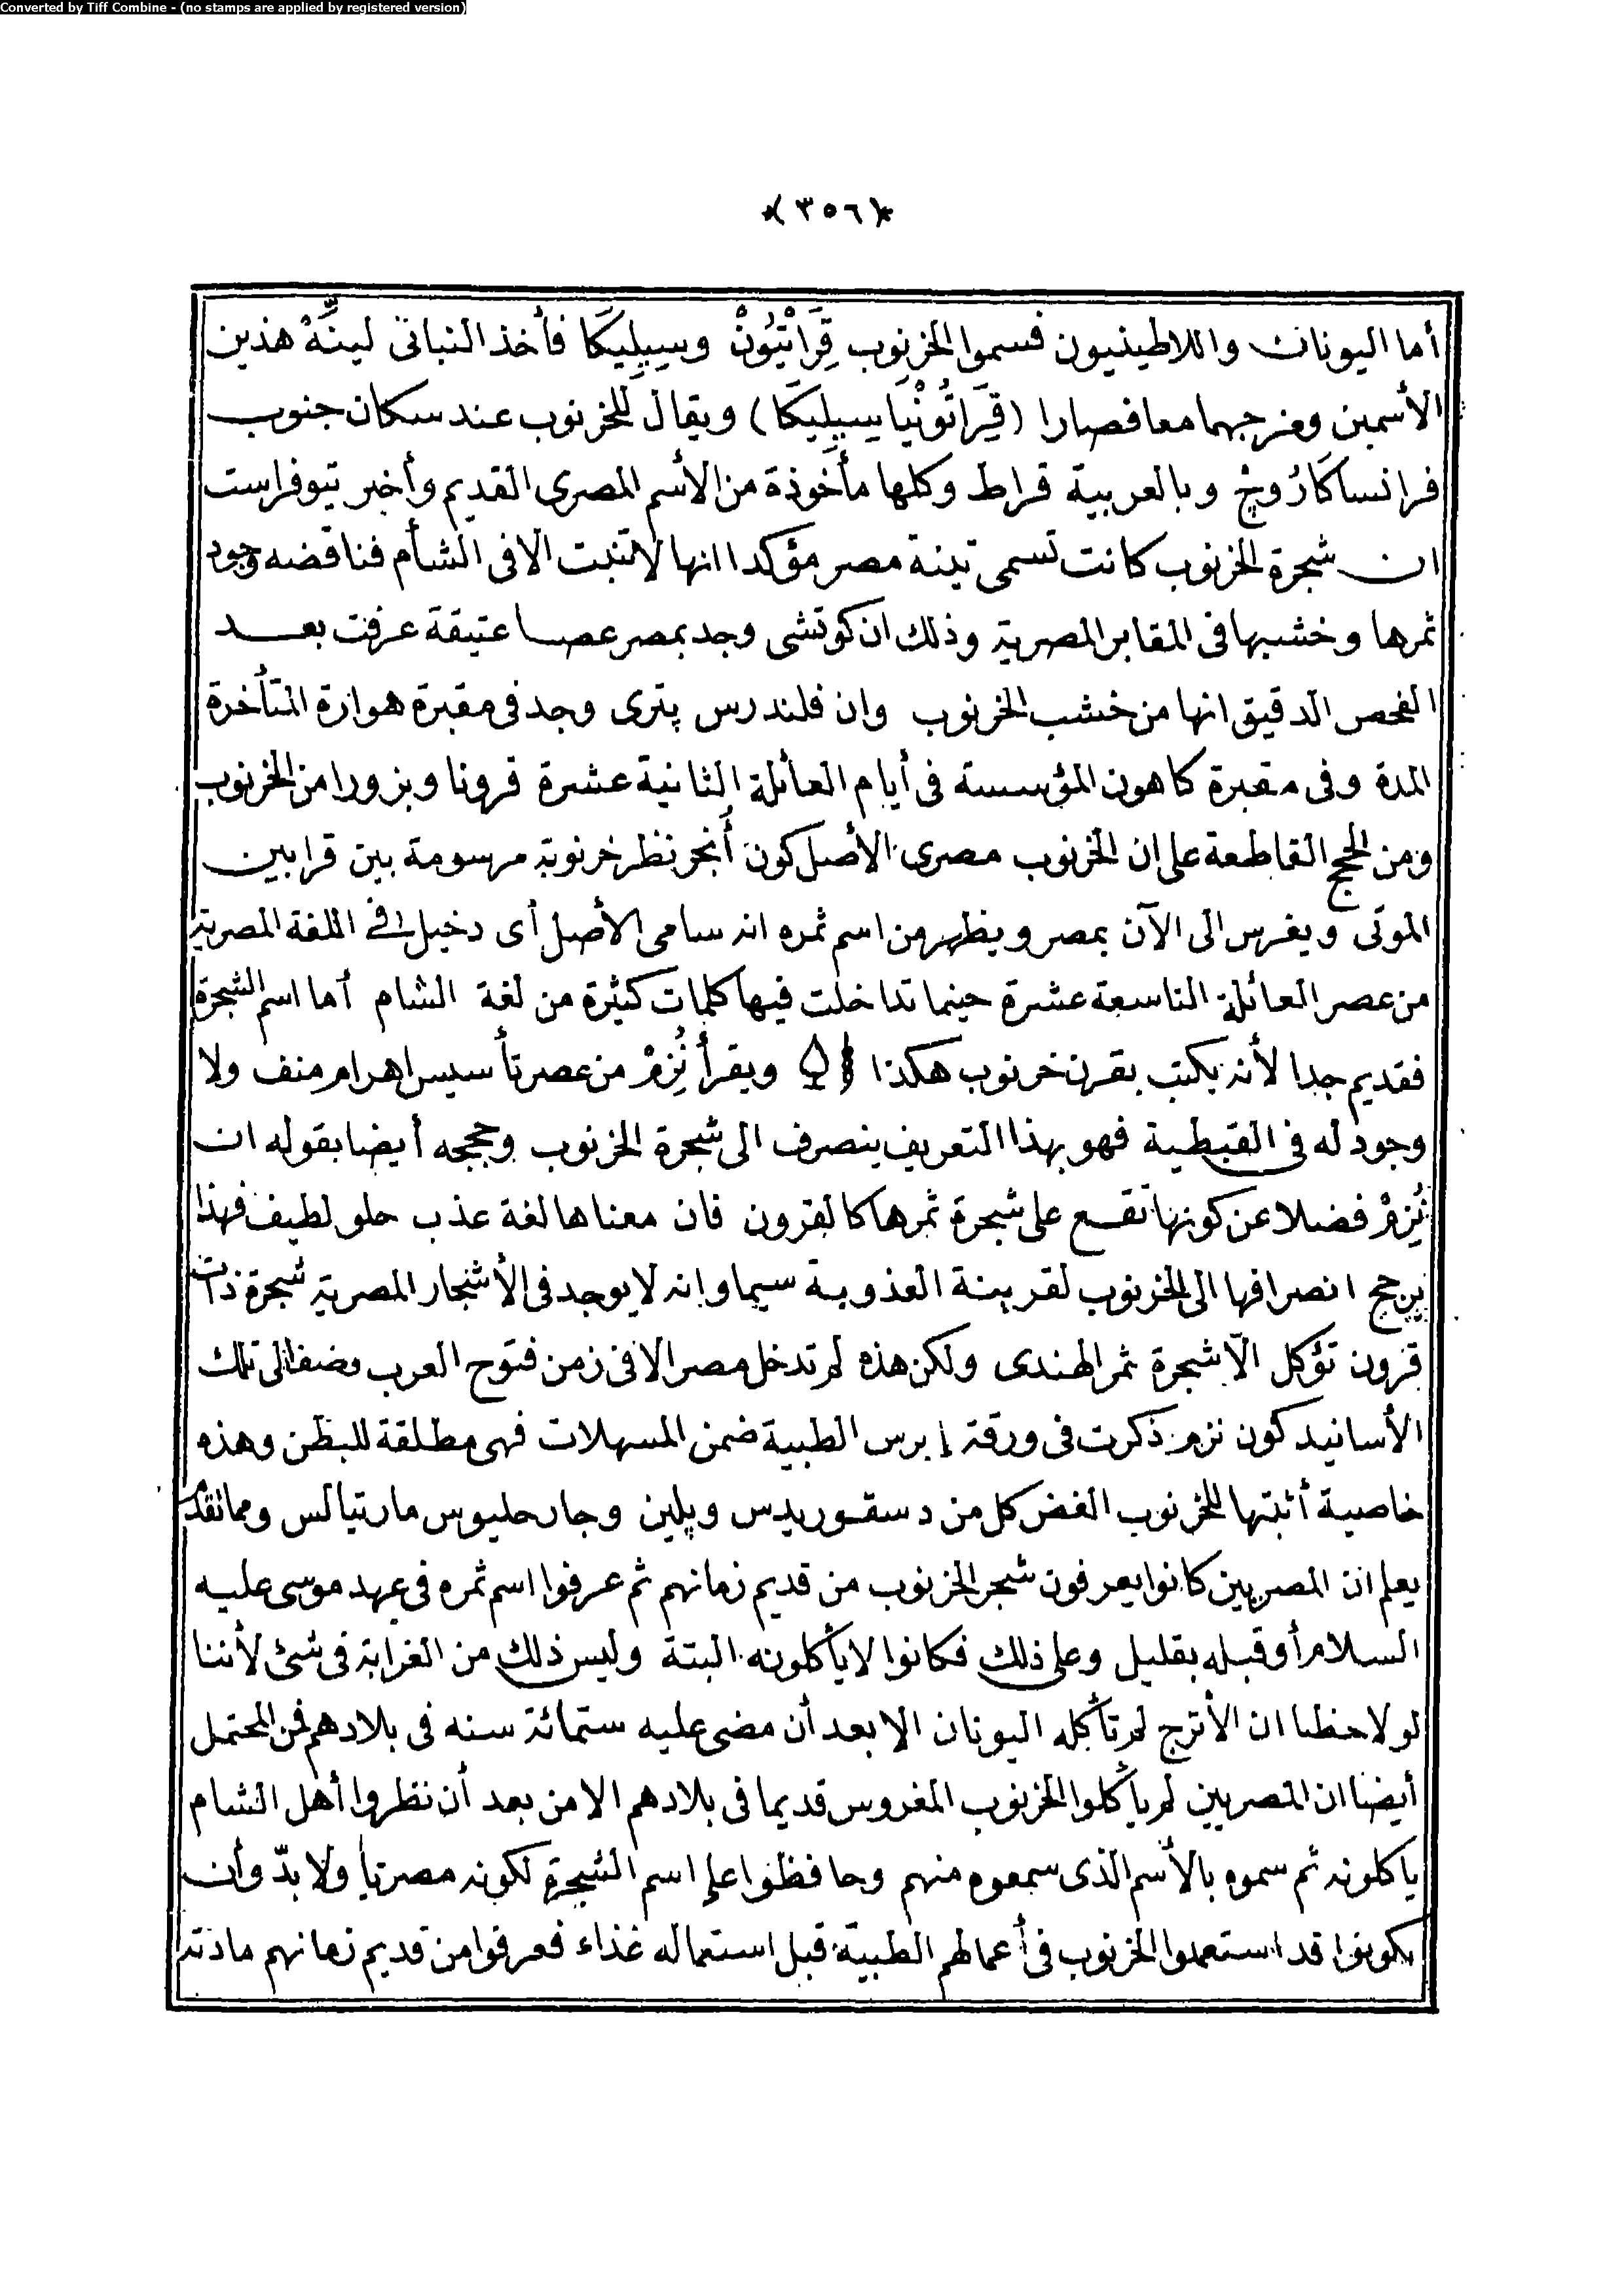 Converted by Tiff Combine - (no stamps are applied by registered version)
﴿٣٥٦﴾
أما اليونان واللاطينيون فسموا الخرنوب قِرَاتْيُونْ وسِيلِيكَا فأخذ النباتى لينِّهْ هذين
الأسمين ومزجهما معا فصارا (قِرَاتُونْيَا سِيلِيكَا) ويقال للخرنوب عند سكان جنوب
فرانسا كَارُوجْ وبالعربية قراط وكلها مأخوذة من الأسم المصرى القديم وأخبر تيوفراست
ان شجرة الخرنوب كانت تسمى تينة مصر مؤكدا انها لا تنبت الا فى الشأم فناقضه وجود
ثمرها وخشبها فى المقابر المصرية وذلك ان كوتشى وجد بمصر عصا عتيقة عرفت بعد
الفحص الدقيق انها من خشب الخرنوب وان فلندرس پترى وجد فى مقبرة هوارة المتأخرة
المدة وفى مقبرة كاهون المؤسسة فى أيام العائلة الثانية عشرة قرونا وبزورا من الخرنوب
ومن الحجج القاطعة على ان الخرنوب مصرى الأصل كون أنجر نظر خرنوبة مرسومة بين قرابين
الموتى ويغرس الى الآن بمصر ويظهر من اسم ثمره انه سامى الأصل أى دخيل فى اللغة المصرية
من عصر العائلة التاسعة عشرة حينما تداخلت فيها كلمات كثيرة من لغة الشام أما اسم الشجرة
فقديم جدا لأنه يكتب بقرن خرنوب هكذا ويقرأ نُزِمْ من عصر تأسيس اهرام منف ولا
وجود له فى القبطية فهو بهذا التعريف ينصرف الى شجرة الخرنوب وحججه أيضا بقوله ان
نُزِمْ فضلا عن كونها تقع على شجرة ثمرها كالقرون فان معناها لغة عذب حلو لطيف فهذا
يرجح انصرافها الى الخرنوب لقرينة العذوبة سيما وانه لا يوجد فى الأشجار المصرية شجرة ذات
قرون تؤكل الّا شجرة ثمر الهندى ولكن هذه لم تدخل مصر الا فى زمن فتوح العرب وضف الى تلك
الأسانيد كون نزم ذكرت فى ورقة إبرس الطبية ضمن المسهلات فهى مطلقة للبطن وهذه
خاصية أثبتها للخرنوب الغض كل من دسقوريدس وپلين وجارحليوس مارتيالس ومما تقدم
يعلم ان المصريين كانوا يعرفون شجر الخرنوب من قديم زمانهم ثم عرفوا اسم ثمره فى عهد موسى عليه
السلام أو قبله بقليل وعلى ذلك فكانوا لا يأكلونه البتة وليس ذلك من الغرابة فى شئ لأننا
لو لاحظنا ان الأترج لم تأكله اليونان الا بعد أن مضى عليه ستمائة سنه فى بلادهم فمن المحتمل
أيضا ان المصريين لم يأكلوا الخرنوب المغروس قديما فى بلادهم الا من بعد أن نظروا أهل الشام
ياكلونه ثم سموه بالأسم الذى سمعوه منهم وحافظوا على اسم الشجرة لكونه مصريا ولا بدّ وأن
يكونوا قد استعملوا الخرنوب فى أعمالهم الطبية قبل استعماله غذاء فعرفوا من قديم زمانهم مادته